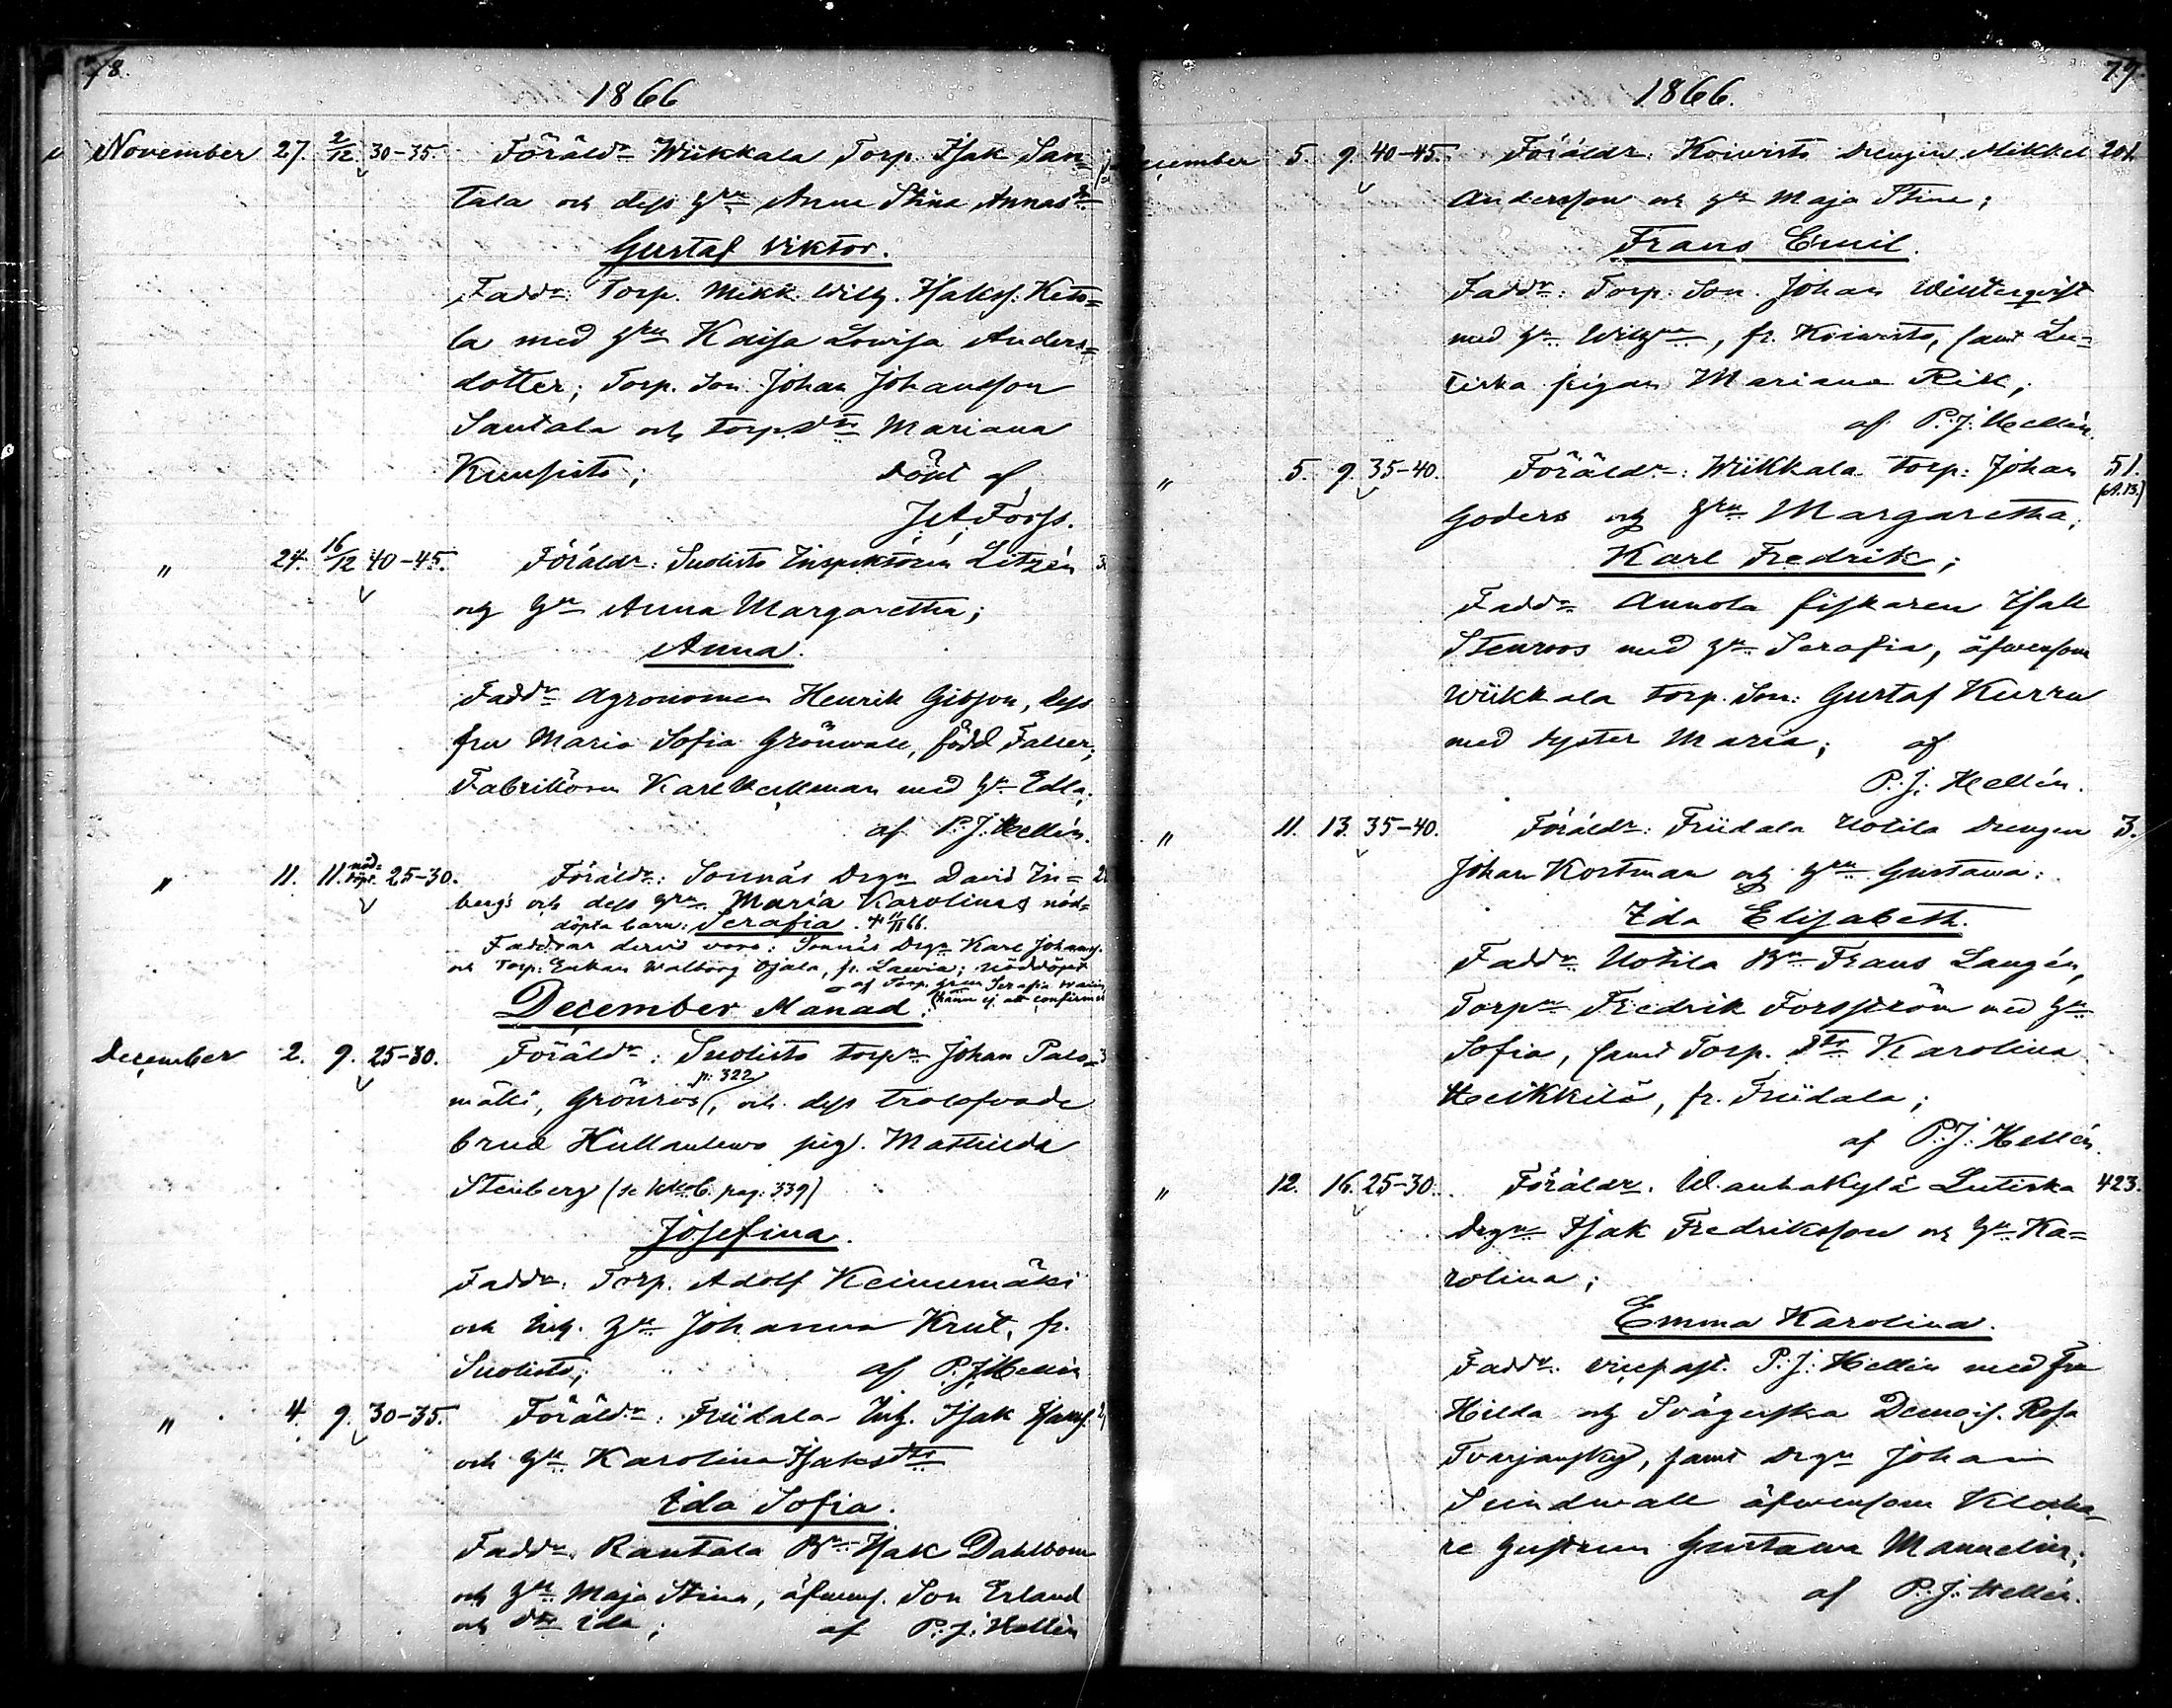 78.
1866
November 27. 2/12 30-35. Föräldr Wiikkala Torp. Isak San=
tala och dess hru Anna Stina Annasdr
Gustaf Viktor.
Faddr: Torp. Mikk. Wilh. Isakss. Keto=
la med hru Kaisa Lovisa Anders=
dotter; Torp. Son Johan Johansson
Santala och torp.dtr Mariana
Kuusisto; döpt af
J.A. Forss.
" 24. 16/12 40-45. Föräldr: Suolisto Inspektoren Litzén
och hu Anna Margaretha;
Anna.
Faddr Agronomen Henrik Gibson, dess
fru Maria Sofia Grönwall, född Faller;
Fabrikören Karl Weckman med hu Edla;
af P.J. Hellén.
" 11. 11. nöd=döpt. 25-30. Föräldr: Sonnäs Drgn David In=
bergs och dess hru Maria Karolinas nöd=
döpta barn: Serafia. † 11/11 66.
Faddrar dervid voro: Sonnäs Drgn Karl Johanss.
och Torp. Enkan Walborg Ojala, fr. Laevia; nöddöpt
af Torp. hrun Serafia
December Månad.
December 2. 9. 25-30. Föräldr: Suolisto torpn Johan Palo=
mäki, Grönros, p: 322 och dess trolofvade
brud Hullanlewo pig. Mathilda
Stenberg (se pag: 339)
Josefina.
Faddr: Torp. Adolf Keinumäki
och Inh. hu Johanna Krut, fr.
Suolisto; af P.J. Hellén
" 4. 9. 30-35. Föräldr: Friidala Inh. Isak Hanss.
och hu Karolina Isaksdtr
Ida Sofia.
Faddr. Rantala Bn Isak Dahlbom
och hu Maja Stina, äfvens. Son Erland
och dtr Ida; af P.J. Hellén
79.
1866.
December 5. 9. 40-45. Föräldr: Koivisto Drengen Mikkel 201.
Andersson och hu Maja Stina;
Frans Emil.
Faddr: Torp. Son. Johan Winterqvist
med hu Wilhna, fr. Koivisto, samt Lu=
tirka pigan Mariana Rik;
af P.J. Hellén.
" 5. 9. 35-40. Föräldr: Wiikkala torp: Johan 51.
Goders och hru Margaretha;
Karl Fredrik;
Faddr Annola fiskaren Isak
Stenroos med hu Serafia, äfvensom
Wiikkala torp. Son: Gustaf Kurru
med syster Maria; af
P.J. Hellén.
" 11. 13. 35-40. Föräldr: Friidala Uotila Drengen 3.
Johan Kortman och hru Gustava:
Ida Elisabeth.
Faddr Uotila Bn Frans Langén,
Torpn Fredrik Forsström med hu
Sofia, samt Torp. dtr Karolina
Heikkilä, fr. Friidala;
af P.J. Hellén.
" 12. 16. 25-30. Föräldr. Wanhakylä Lutirka 423.
Drgn Isak Fredriksson och hu Ka=
rolina;
Emma Karolina.
Faddr. vicepast. P.J. Hellén med fru
Hilda och Svägerska Demois. Rosa
samt drgn Johan
Sundwall äfvensom Klocka=
re hustrun Gustava Mannelin;
af P.J. Hellén.